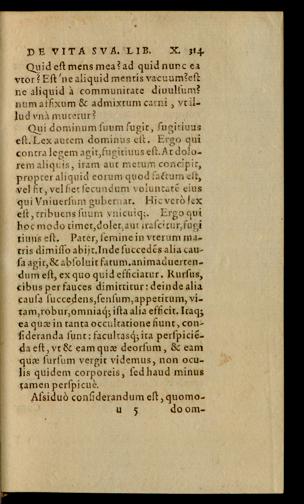 DE VITA SVA. LIB. X. 314
Quid est mens mea? ad quid nunc ea
vtor? Est'ne aliquid mentis vacuum? est
ne aliquid à communitate diuulsum?
num affixum & admixtum carni, vt il-
lud vnà mutetur?
Qui dominum suum fugit, fugitiuus
est. Lex autem dominus est. Ergo qui
contra legem agit, fugitiuus est. At dolo-
rem aliquis, iram aut metum concipit,
propter aliquid eorum quod factum est,
vel fit, vel fiet secundum voluntatē eius
qui Vniuersum gubernat. Hic verò lex
est, tribuens suum vnicuiq;. Ergo qui
hoc modo timet, dolet, aut irascitur, fugi
tiuus est. Pater, semine in vterum ma-
tris dimisso abijt. Inde succedēs alia cau-
sa agit, & absoluit fatum. animaduerten-
dum est, ex quo quid efficiatur. Rursus,
cibus per fauces dimittitur: deinde alia
causa succedens, sensum, appetitum, vi-
tam, robur, omniaq; ista alia efficit. Itaq;
ea quæ in tanta occultatione fiunt, con-
sideranda sunt: facultasq; ita perspiciē-
da est, vt & eam quæ deorsum, & eam
quæ sursum vergit videmus, non ocu-
lis quidem corporeis, sed haud minus
tamen perspicuè.
Assiduò considerandum est, quomo-
u 5 do om-